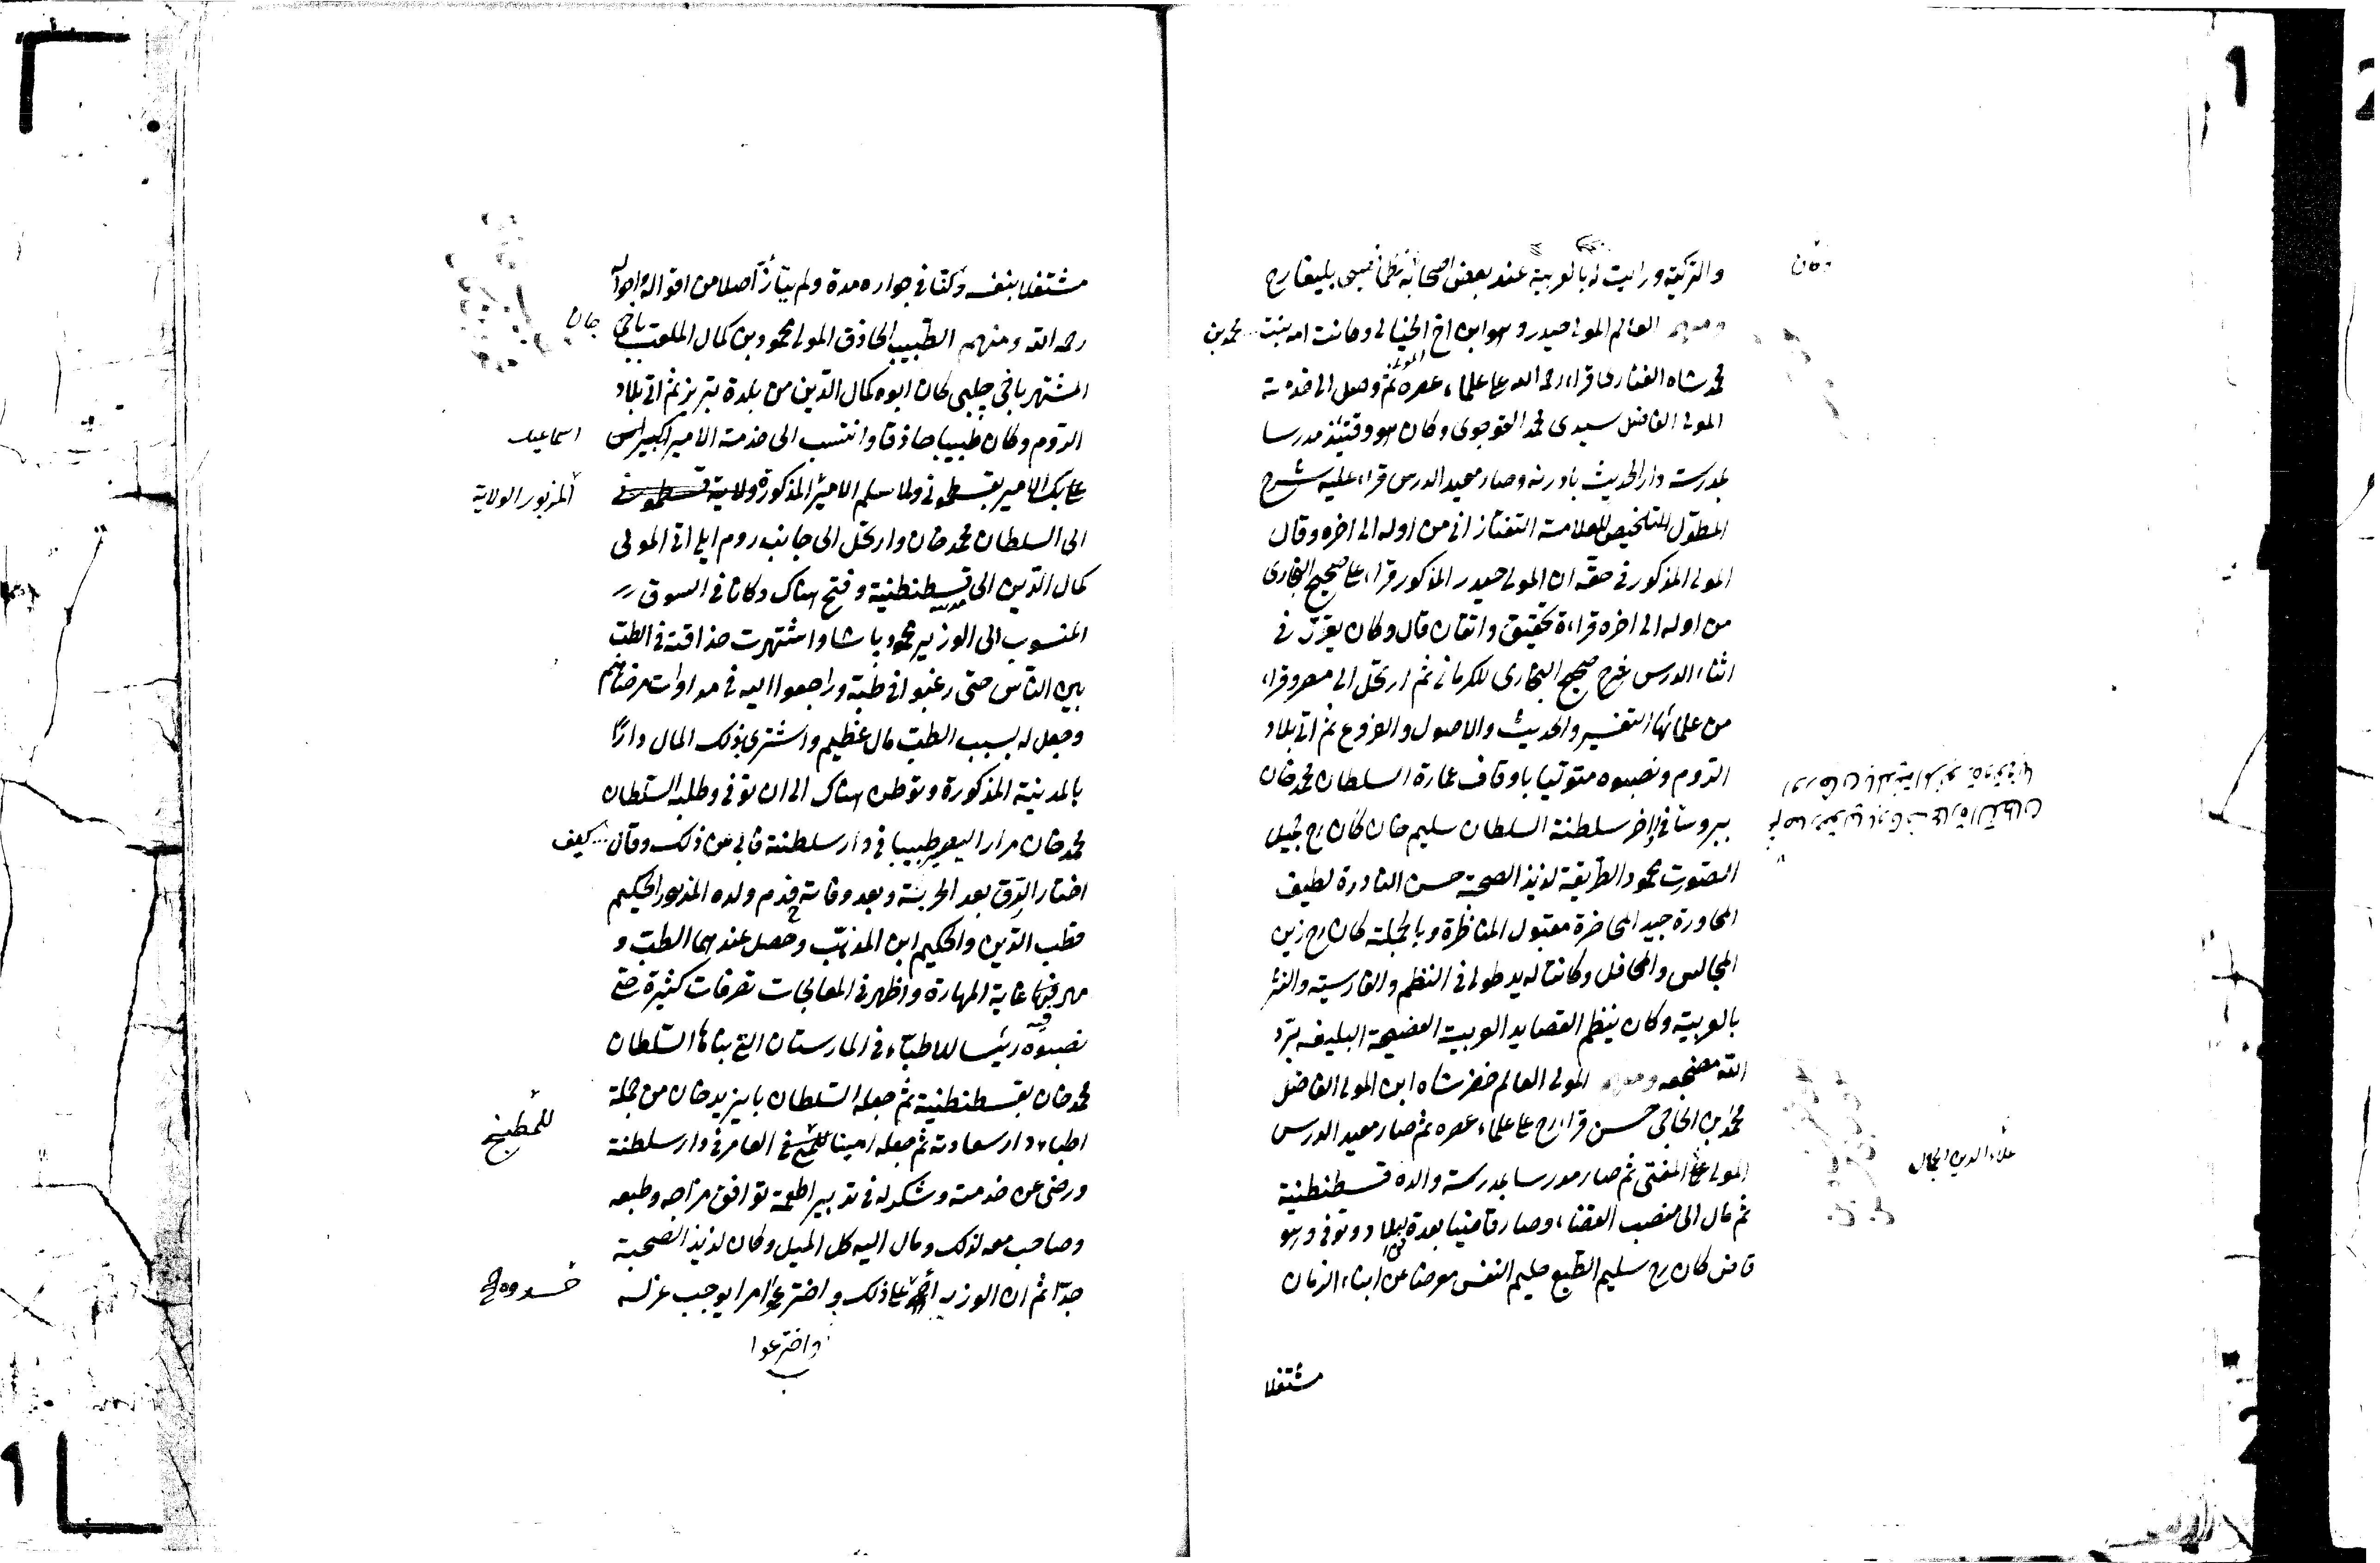 والتركية ورايت له بالعربية عند بعض اصحابه نظما فصيحا بليغا رح
وكان
ومنهم العالم المولى حيدر وهو ابن اخ الخيالى وكانت امه بنت محمد بن
محمد شاه الفنارى قراء رحمه الله على علماء عصره ثم وصل الى خدمة
المولى
المولى الفاضل سيدى محمد القوجوى وكان هو وقتئذ مدرسا
بمدرسة دار الحديث بادرنه وصار معيد الدرس قراء عليه شرح
المطول للتلخيص للعلامة التفتازانى من اوله الى اخره وقال
المولى المذكور فى حقه ان المولى حيدر المذكور قراء على صحيح البخارى
من اوله الى اخره قراءة تحقيق واتقان قال وكان يقرر فى
اثناء الدرس شرح صحيح البخارى للكرمانى ثم ارتحل الى مصر وقراء
من علمائها التفسير والحديث والاصول والفروع ثم اتى بلاد
الروم ونصبوه متوليا باوقاف عمارة السلطان محمد خان
ببروسا فى اواخر سلطنة السلطان سليم خان كان رح جميل
الصورت محمود الطريقة لذيذ الصحبة حسن النادرة لطيف
المحاورة جيد المحاضرة مقبول المناظرة وبالجملة كان رح زين
المجالس والمحافل وكانت له يد طولى فى النظم والفارسية والنثر
بالعربية وكان ينظم القصايد العربية الفصيحة البليغه برّد
الله مضجعه ومنهم المولى العالم خضر شاه ابن المولى الفاضل
محمد ابن الحاجى حسن قراء رح على علماء عصره ثم صار معيد الدرس
المولى على المفتى ثم صار مدرسا بمدرسة والده قسطنطنية
علاء الدين الجمالى
ثم مال الى منصب القضاء وصار قاضيا بعدة بلاد وتوفى وهو
قاض كان رح سليم الطبع حليم النفس معرضا عن ابناء الزمان
مشتغلا
مشتغلا بنفسه وكنا فى جواره مدة ولم نتأذ اصلا من اقواله واحواله
رحمه الله ومنهم الطبيب الحاذق المولى محمود بن كمال الملقب باخى جان
المشتهر باخى چلبى كان ابوه كمال الدين من بلدة تبريز ثم اتى بلاد
الروم وكان طبيبا حاذقا وانتسب الى خدمة الامير الكبير ابن
اسماعيل
بك الامير بقسطمونى ولما سلم الامير المذكور ولاية قسطمونى
المزبور الولاية
الى السلطان محمد خان وارتحل الى جانب روم ايلى اتى المولى
كمال الدين الى قسطنطنية وفتح هناك دكانا فى السوق
المنسوب الى الوزير محمود باشا واشتهرت حذاقته فى الطب
بين الناس حتى رغبوا فى طبه وراجعوا اليه فى مداوات مرضاهم
وحصل له بسبب الطب مال عظيم واشترى بذلك المال دارًا
بالمدينة المذكورة وتوطن هناك الى ان توفى وطلبه السلطان
محمد خان مرارا ليصير طبيبا فى دار سلطنته فابى عن ذلك وقال كيف
اختار الرق بعد الحرية وبعد وفاته خدم ولده المذكور الحكيم
قطب الدين والحكيم ابن المذهب وحصل عندهما الطب و
مهر فيها غاية المهارة واظهر فى المعالجات تصرفات كثيرة حتى
نصبوه رئيسا للاطباء فى المارستان التى بناها السلطان
محمد خان بقسطنطنية ثم جعله السلطان بايزيد خان من جملة
اطباء دار سعادته ثم جعله امينا للمطبخ العامر فى دار سلطنته
للمطبخ
ورضى عن خدمته وشكر له فى تدبير اطعمة توافق مزاجه وطبعه
وصاحب معه لذلك ومال اليه كل الميل وكان لذيذ الصحبة
جدّا ثم ان الوزراء على ذلك واخترعوا امرا يوجب عزله
حسدوه
واخترعوا